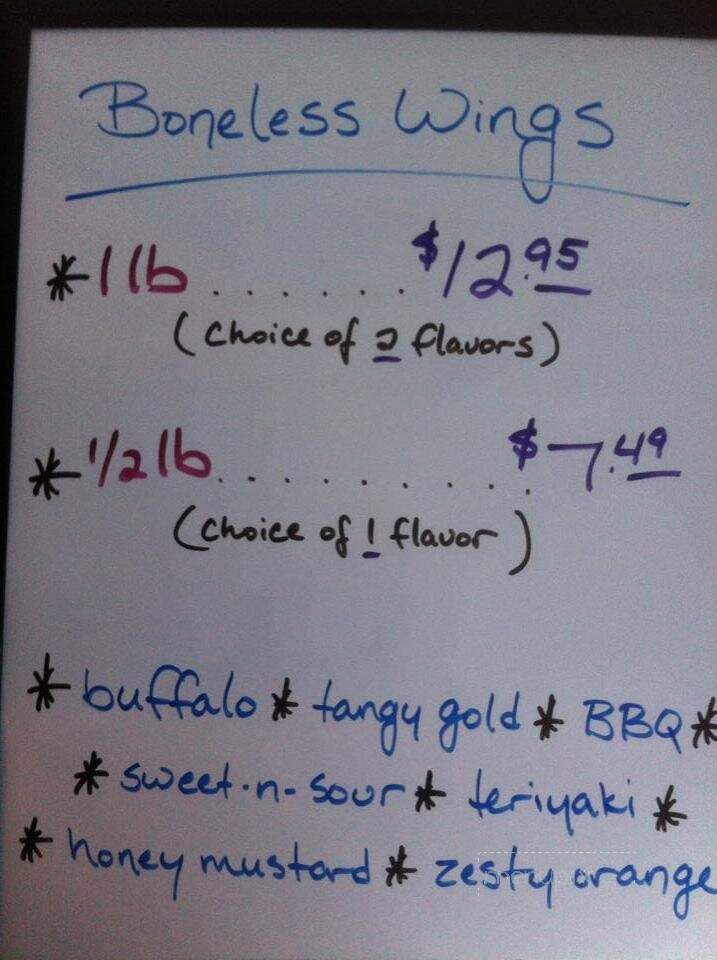 Boneless Wings
* 1 lb . . . . . . . $12.95
(Choice of 2 flavors)
* 1/2 lb . . . . . . . . . . . $7.49
(Choice of 1 flavor)
* buffalo * tangy gold * BBQ *
* sweet-n-sour * teriyaki *
* honey mustard * zesty orange